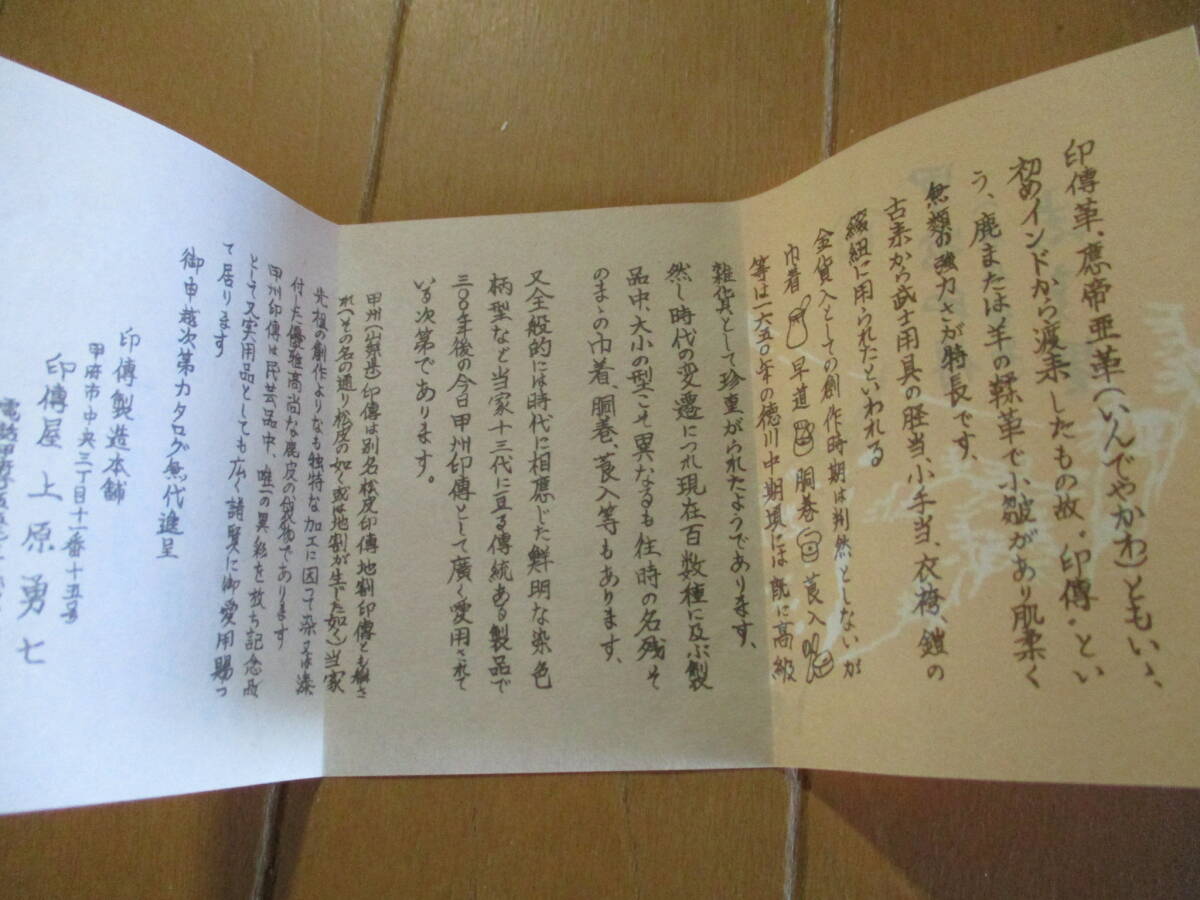 印傳革、應帝亜革(いんでやかわ)ともいゝ、
初めインドから渡来したもの故・印傳・とい
う、鹿または羊の鞣革で小皺があり肌柔く
無類の強力さが特長です。
古来から武士用具の脛当、小手当、衣袴、鎧の
綴紐に用られたといわれる
金貨入としての創作時期は判然としないが
巾着 早道 胴巻 莨入
等は一六五〇年の徳川中期頃には既に高級
雑貨として珍重がられたようであります、
然し時代の変遷につれ現在百数種に及ぶ製
品中、大小の型こそ異なるも往時の名残そ
のまゝの巾着、胴巻、莨入等もあります、
又全般的には時代に相應じた鮮明な染色
柄型など当家十三代に亘る傳統ある製品で
三〇〇年後の今日甲州印傳として廣く愛用されて
いる次第であります。
甲州(山梨県)印傳は別名松皮印傳地割印傳とも称さ
れ(その名の通り松皮の如く或は地割が生じた如く)当家
先祖の創作よりなも独特な加工に因つて染又は漆
付した優雅高尚な鹿皮の袋物であります
甲州印傳は民芸品中、唯一の異彩を放ち記念品
として又実用品としても広く諸賢に御愛用賜つ
て居ります
御申越次第カタログ無代進呈
印傳製造本舗
甲府市中央三丁目十一番十五号
印傳屋 上原勇七
電話甲府